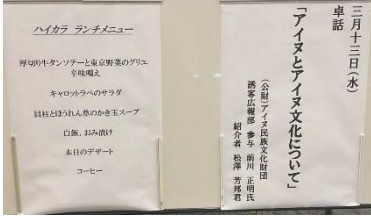 ハイカラ ランチメニュー
厚切り牛タンソテーと東京野菜のグリエ
辛味噌え
キャロットラペのサラダ
貝柱とほうれん草のかき玉スープ
白飯、おみ漬け
本日のデザート
コーヒー
三月十三日(水)
卓話
「アイヌとアイヌ文化について」
(公財)アイヌ民族文化財団
誘客広報部 参与 前川 正明氏
紹介者 松澤 芳邦君